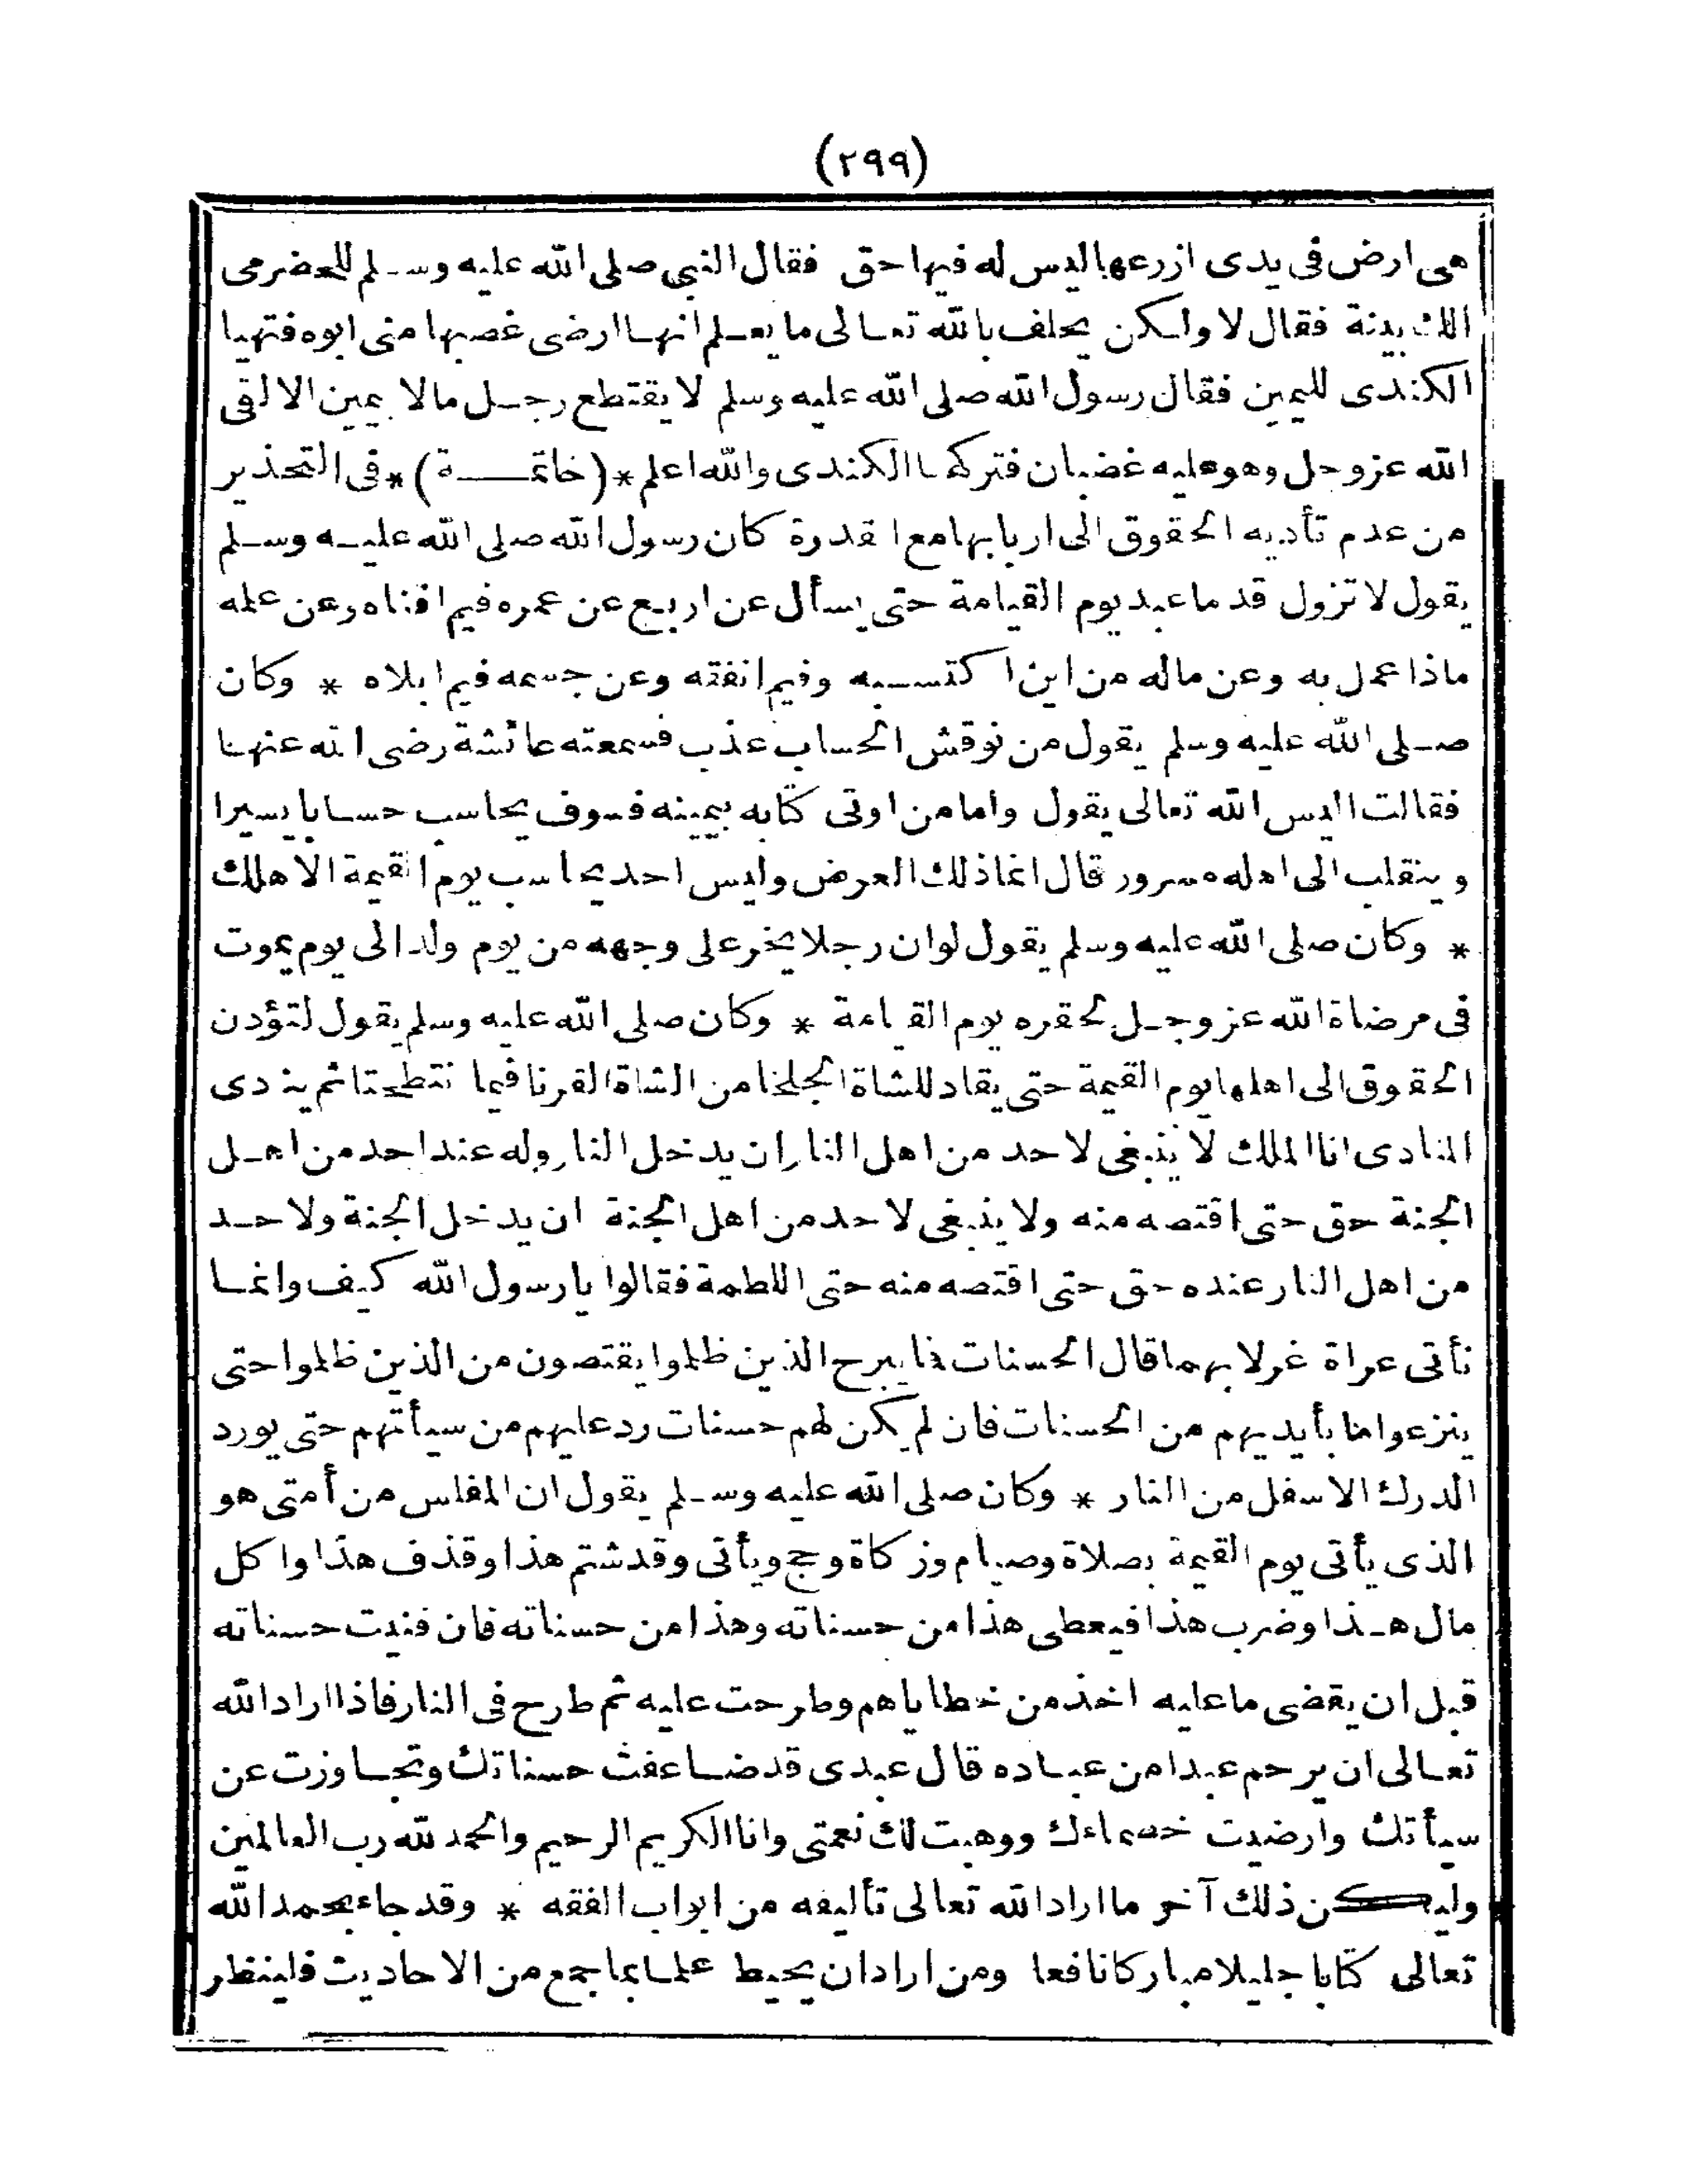 (٢٩٩)
هى ارض فى يدى ازرعها ليس له فيها حق فقال النبي صلى الله عليه وسلم للحضرمى
الك بينة فقال لا ولكن يحلف بالله تعالى ما يعلم انها ارضى غصبها منى ابوه فتهيا
الكندى لليمين فقال رسول الله صلى الله عليه وسلم لا يقتطع رجل مالا بيمين الا لقى
الله عز وجل وهو عليه غضبان فتركها الكندى والله اعلم * (خاتمة) * فى التحذير
من عدم تأديه الحقوق الى اربابها مع القدرة كان رسول الله صلى الله عليه وسلم
يقول لا تزول قدما عبد يوم القيامة حتى يسأل عن اربع عن عمره فيم افناه وعن علمه
ماذا عمل به وعن ماله من اين اكتسبه وفيم انفقه وعن جسمه فيم ابلاه * وكان
صلى الله عليه وسلم يقول من نوقش الحساب عذب فسمعته عائشة رضى الله عنها
فقالت اليس الله تعالى يقول واما من اوتى كتابه بيمينه فسوف يحاسب حسابا يسيرا
وينقلب الى اهله مسرور قال انما ذلك العرض وليس احد يحاسب يوم القيمة الا هلك
* وكان صلى الله عليه وسلم يقول لو ان رجلا يخر على وجهه من يوم ولد الى يوم يموت
فى مرضاة الله عز وجل لحقره يوم القيامة * وكان صلى الله عليه وسلم يقول لتؤدن
الحقوق الى اهلها يوم القيمة حتى يقاد للشاة الجلحا من الشاة القرنا فيما نتطحتا ثم ينادى
المنادى انا الملك لا ينبغى لاحد من اهل النار ان يدخل النار وله عند احد من اهل
الجنة حق حتى اقتصه منه ولا ينبغى لاحد من اهل الجنة ان يدخل الجنة ولاحد
من اهل النار عنده حق حتى اقتصه منه حتى اللطمة فقالوا يا رسول الله كيف وانما
نأتى عراة غرلا بهما قال الحسنات فما يبرح الذين ظلموا يقتصون من الذين ظلموا حتى
ينزعوا ما بأيديهم من الحسنات فان لم يكن لهم حسنات رد عليهم من سيأتهم حتى يورد
الدرك الاسفل من النار * وكان صلى الله عليه وسلم يقول ان المفلس من أمتى هو
الذى يأتى يوم القيمة بصلاة وصيام وزكاة وحج ويأتى وقد شتم هذا وقذف هذا واكل
مال هذا وضرب هذا فيعطى هذا من حسناته وهذا من حسناته فان فنيت حسناته
قبل ان يقضى ما عليه اخذ من خطاياهم وطرحت عليه ثم طرح فى النار فاذا اراد الله
تعالى ان يرحم عبدا من عباده قال عبدى قد ضاعفت حسناتك وتجاوزت عن
سيأتك وارضيت خصماءك ووهبت لك نعمتى وانا الكريم الرحيم والحمد لله رب العالمين
وليكن ذلك آخر ما اراد الله تعالى تأليفه من ابواب الفقه * وقد جاء بحمد الله
تعالى كتابا جليلا مباركا نافعا ومن اراد ان يحيط علما بما جمع من الاحاديث فلينظر